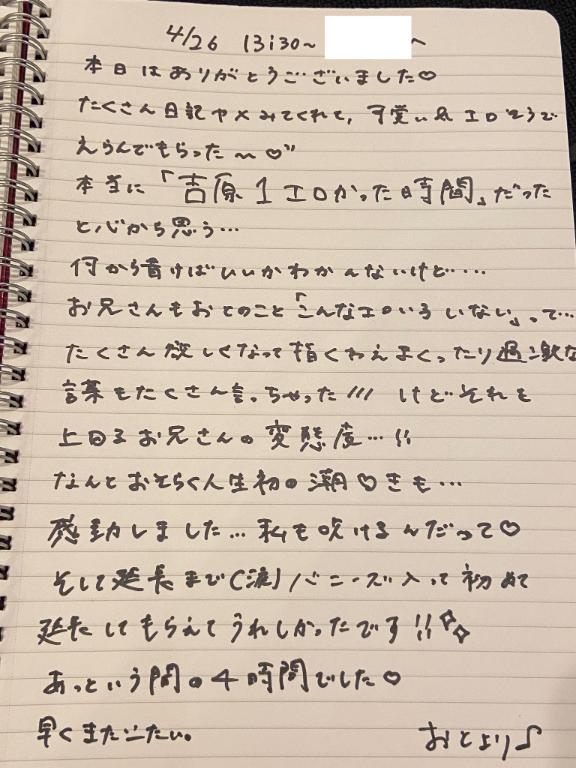 4/26 13:30~ へ
本日はありがとうございました♡
たくさん日記やXみてくれて、可愛い&エロそうで
えらんでもらった〜♡"
本当に「吉原1エロかった時間」だった
と心から思う…
何から書けばいいかわかんないけど……
お兄さんもおとのこと「こんなエロいろいない」って…
たくさん欲しくなって指くわえまくったり過激な
言葉もたくさん言っちゃった/// けどそれを
上回るお兄さんの変態度…!!
なんとおそらく人生初の潮♡きも…
感動しました…私も吹けるんだって♡
そして延長まで(涙)バニーズ入って初めて
延長してもらえてうれしかったです!!✧✧
あっという間の4時間でした♡
早くまた したい。 おとより♪